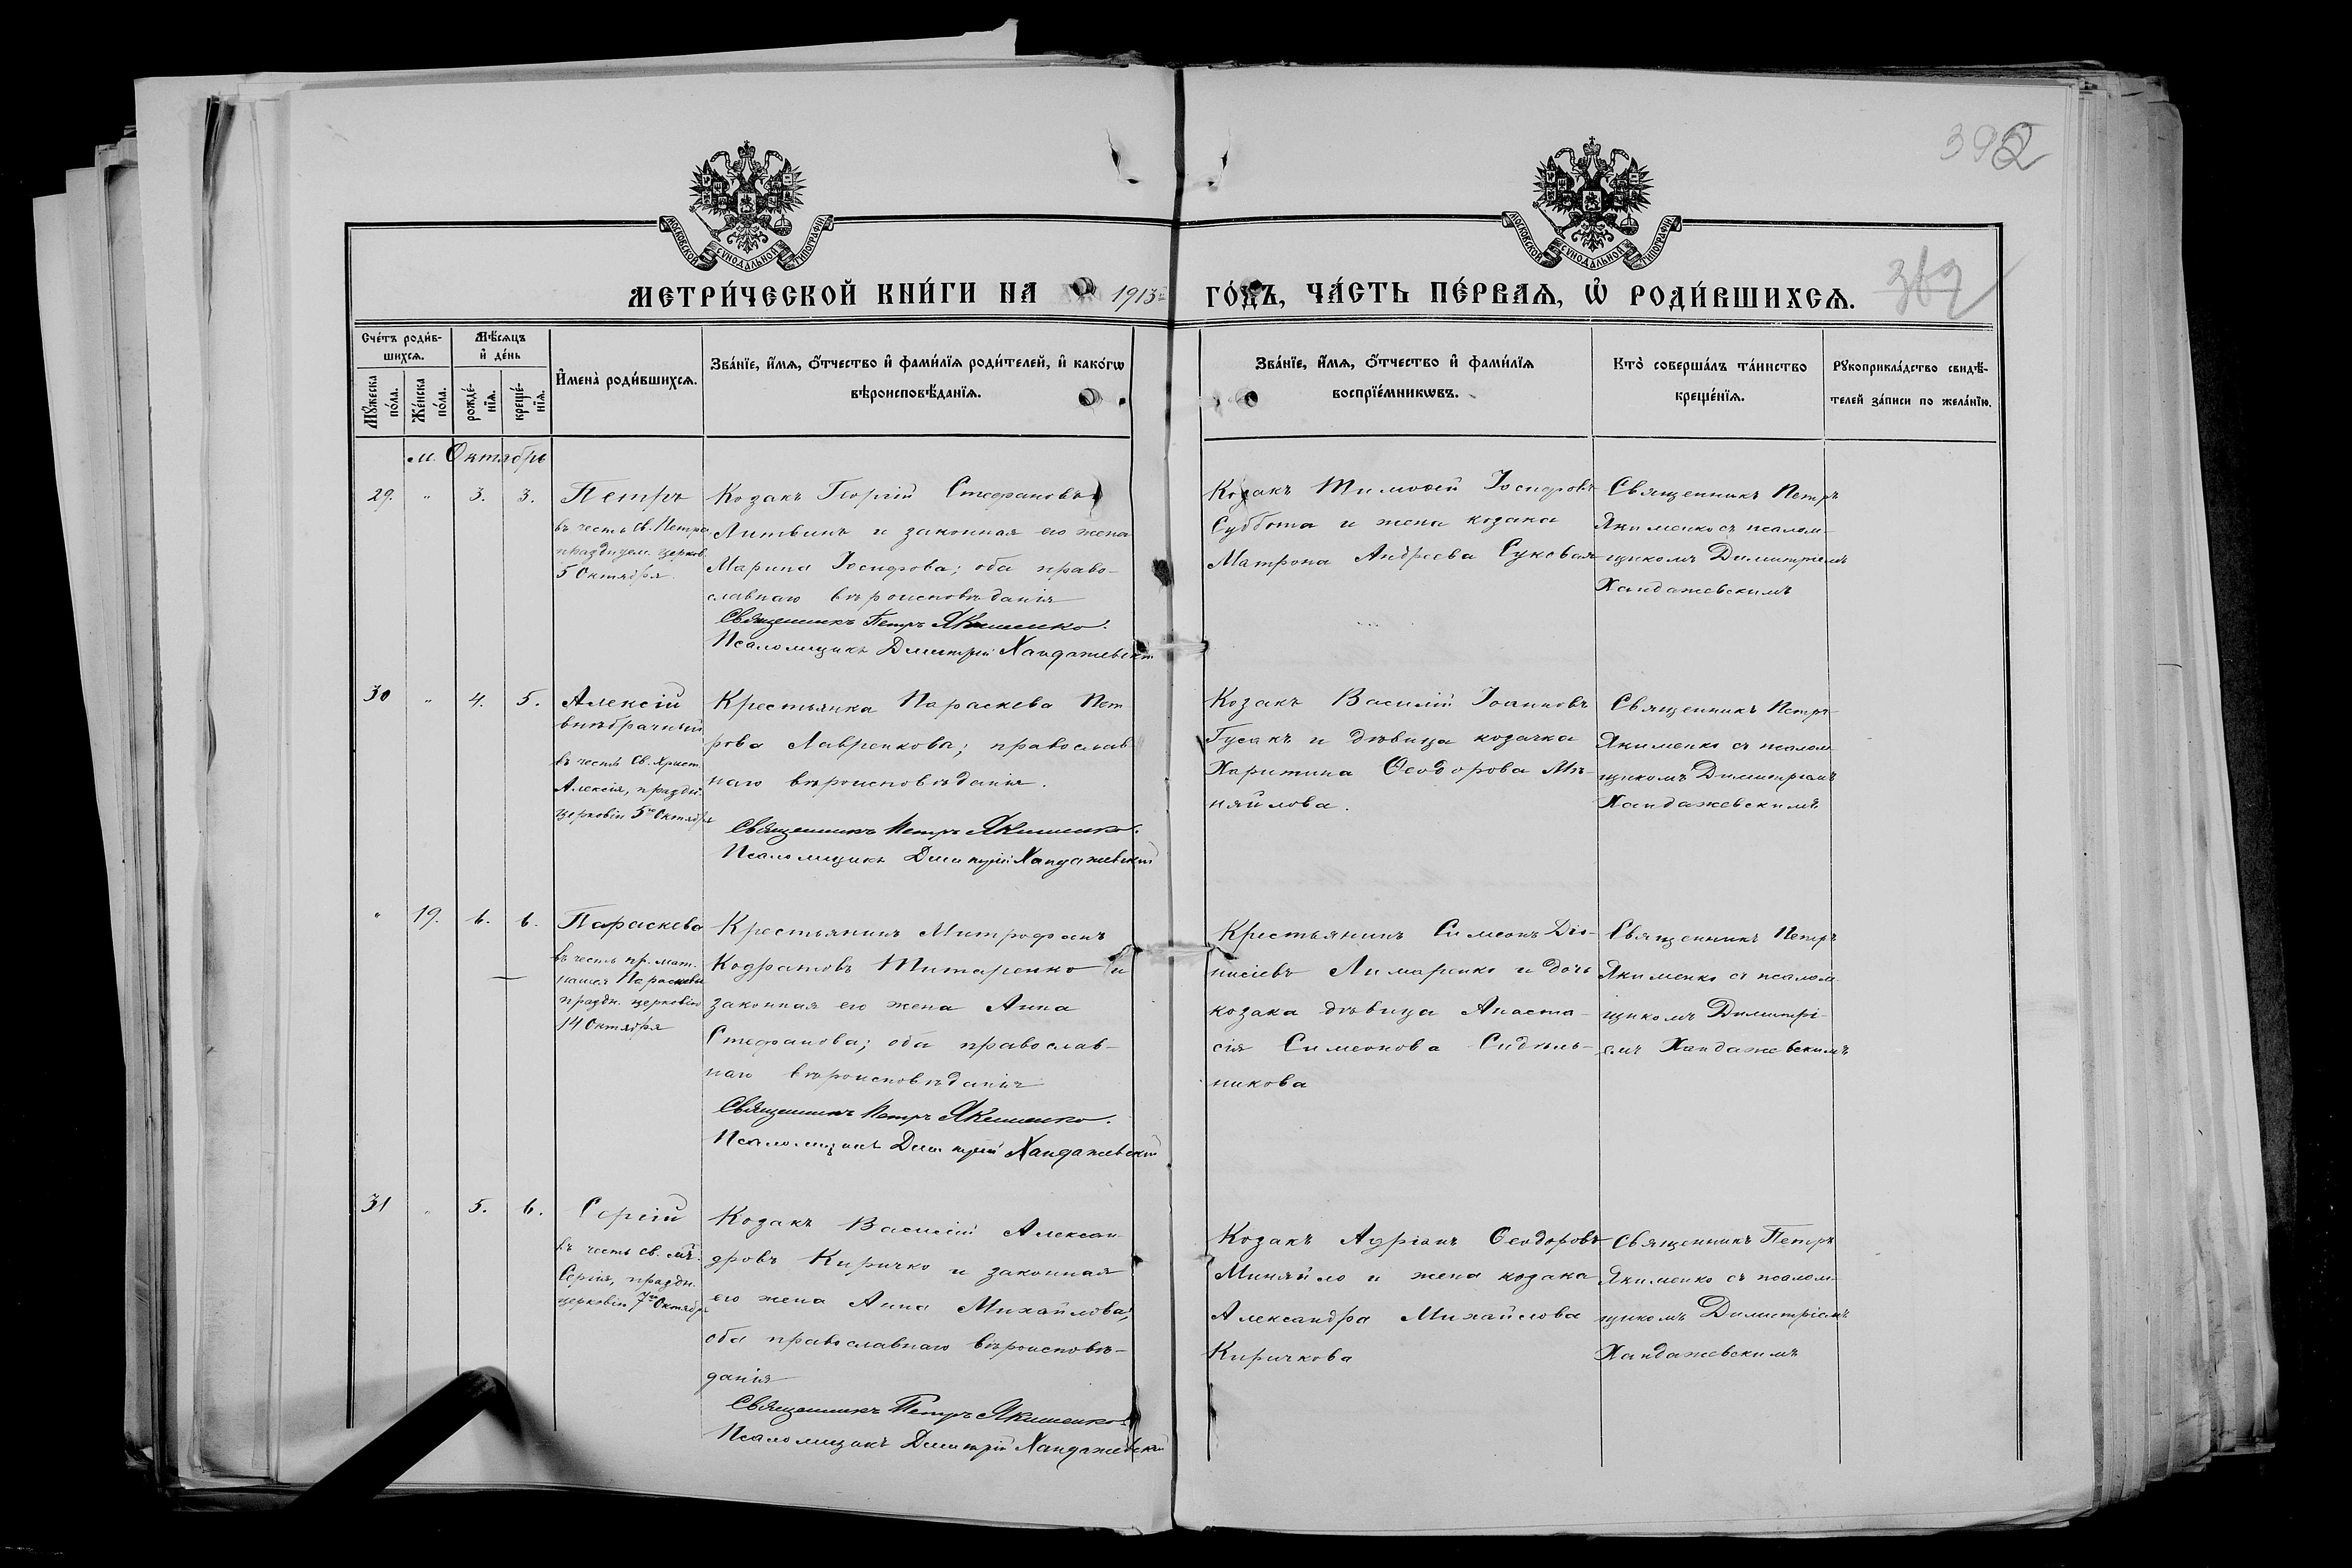 392
367
МОСКОВСКОЙ СѴНОДАЛЬНОЙ ТИПОГРАФІИ
МОСКОВСКОЙ СѴНОДАЛЬНОЙ ТИПОГРАФІИ
МЕТРИ́ЧЕСКОЙ КНИ́ГИ НА 1913 ГО́ДЪ, ЧА́СТЬ ПЕ́РВАѦ, Ѡ҆ РОДИ́ВШИХСѦ.
Сче́тъ роди́в-
шихсѧ.
Мꙋ́жеска
по́ла.
Же́нска
по́ла.
Мѣ́сѧцъ
и҆ де́нь
рожде́-
нїѧ.
креще́-
нїѧ.
И҆мена̀ роди́вшихсѧ.
Зва́нїе, и҆́мѧ, ѻ҆́тчество и҆ фами́лїѧ роди́телей, и҆ како́гѡ
вѣроисповѣ́данїѧ.
Зва́нїе, и҆́мѧ, ѻ҆́тчество и҆ фами́лїѧ
воспрїе́мникѡвъ.
Кто̀ соверша́лъ та́инство
креще́нїѧ.
Рꙋкоприкла́дство свидѣ́-
телей за́писи по жела́нїю.
м. Октябрь
29. " 3. 3.
Петръ
въ честь св. Петра
празднуем. церков.
5 Октября.
Козакъ Георгій Стефановъ
Литвинъ и законная его жена
Марина Іосифова; оба право-
славнаго вѣроисповѣданія
Священникъ Петръ Якименко.
Псаломщикъ Димитрій Хандажевскій
Козакъ Тимоѳей Іосифовъ
Суббота и жена козака
Матрона Андреева Суковая
Священникъ Петръ
Якименко съ псалом-
щикомъ Димитріемъ
Хандажевскимъ
30 " 4. 5.
Алексій
внѣбрачный
въ честь Св. Христ.
Алексія, праздн.
церковію 5го Октября
Крестьянка Параскева Пет
рова Лавренкова; православ
наго вѣроисповѣданія.
Священникъ Петръ Якименко.
Псаломщикъ Димитрій Хандажевскій
Козакъ Василій Іоанновъ
Гусакъ и дѣвица козачка
Харитина Ѳеодорова Ми-
няйлова.
Священникъ Петръ
Якименко съ псалом-
щикомъ Димитріемъ
Хандажевскимъ
" 19. 6. 6.
Параскева
въ честь пр. мат.
нашея Параскевы
праздн. церковію
14 Октября
Крестьянинъ Митрофанъ
Кодратовъ Титаренко и
законная его жена Анна
Стефанова; оба православ-
наго вѣроисповѣданія
Священникъ Петръ Якименко.
Псаломщикъ Димитрій Хандажевскій
Крестьянинъ Симеонъ Діо-
нисіевъ Лимаренко и дочь
козака дѣвица Анаста-
сія Симеонова Сидѣль-
никова
Священникъ Петръ
Якименко съ псалом-
щикомъ Димитрі-
емъ Хандажевскимъ
31 " 5. 6.
Сергій
въ честь св. мч.
Сергія, праздн.
церковію 7го Октября
Козакъ Василій Алексан-
дровъ Киричко и законная
его жена Анна Михайлова;
оба православнаго вѣроисповѣ-
данія
Священникъ Петръ Якименко
Псаломщикъ Димитрій Хандажевскій
Козакъ Адріанъ Ѳеодоровъ
Миняйло и жена козака
Александра Михайлова
Киричкова
Священникъ Петръ
Якименко съ псалом-
щикомъ Димитріемъ
Хандажевскимъ